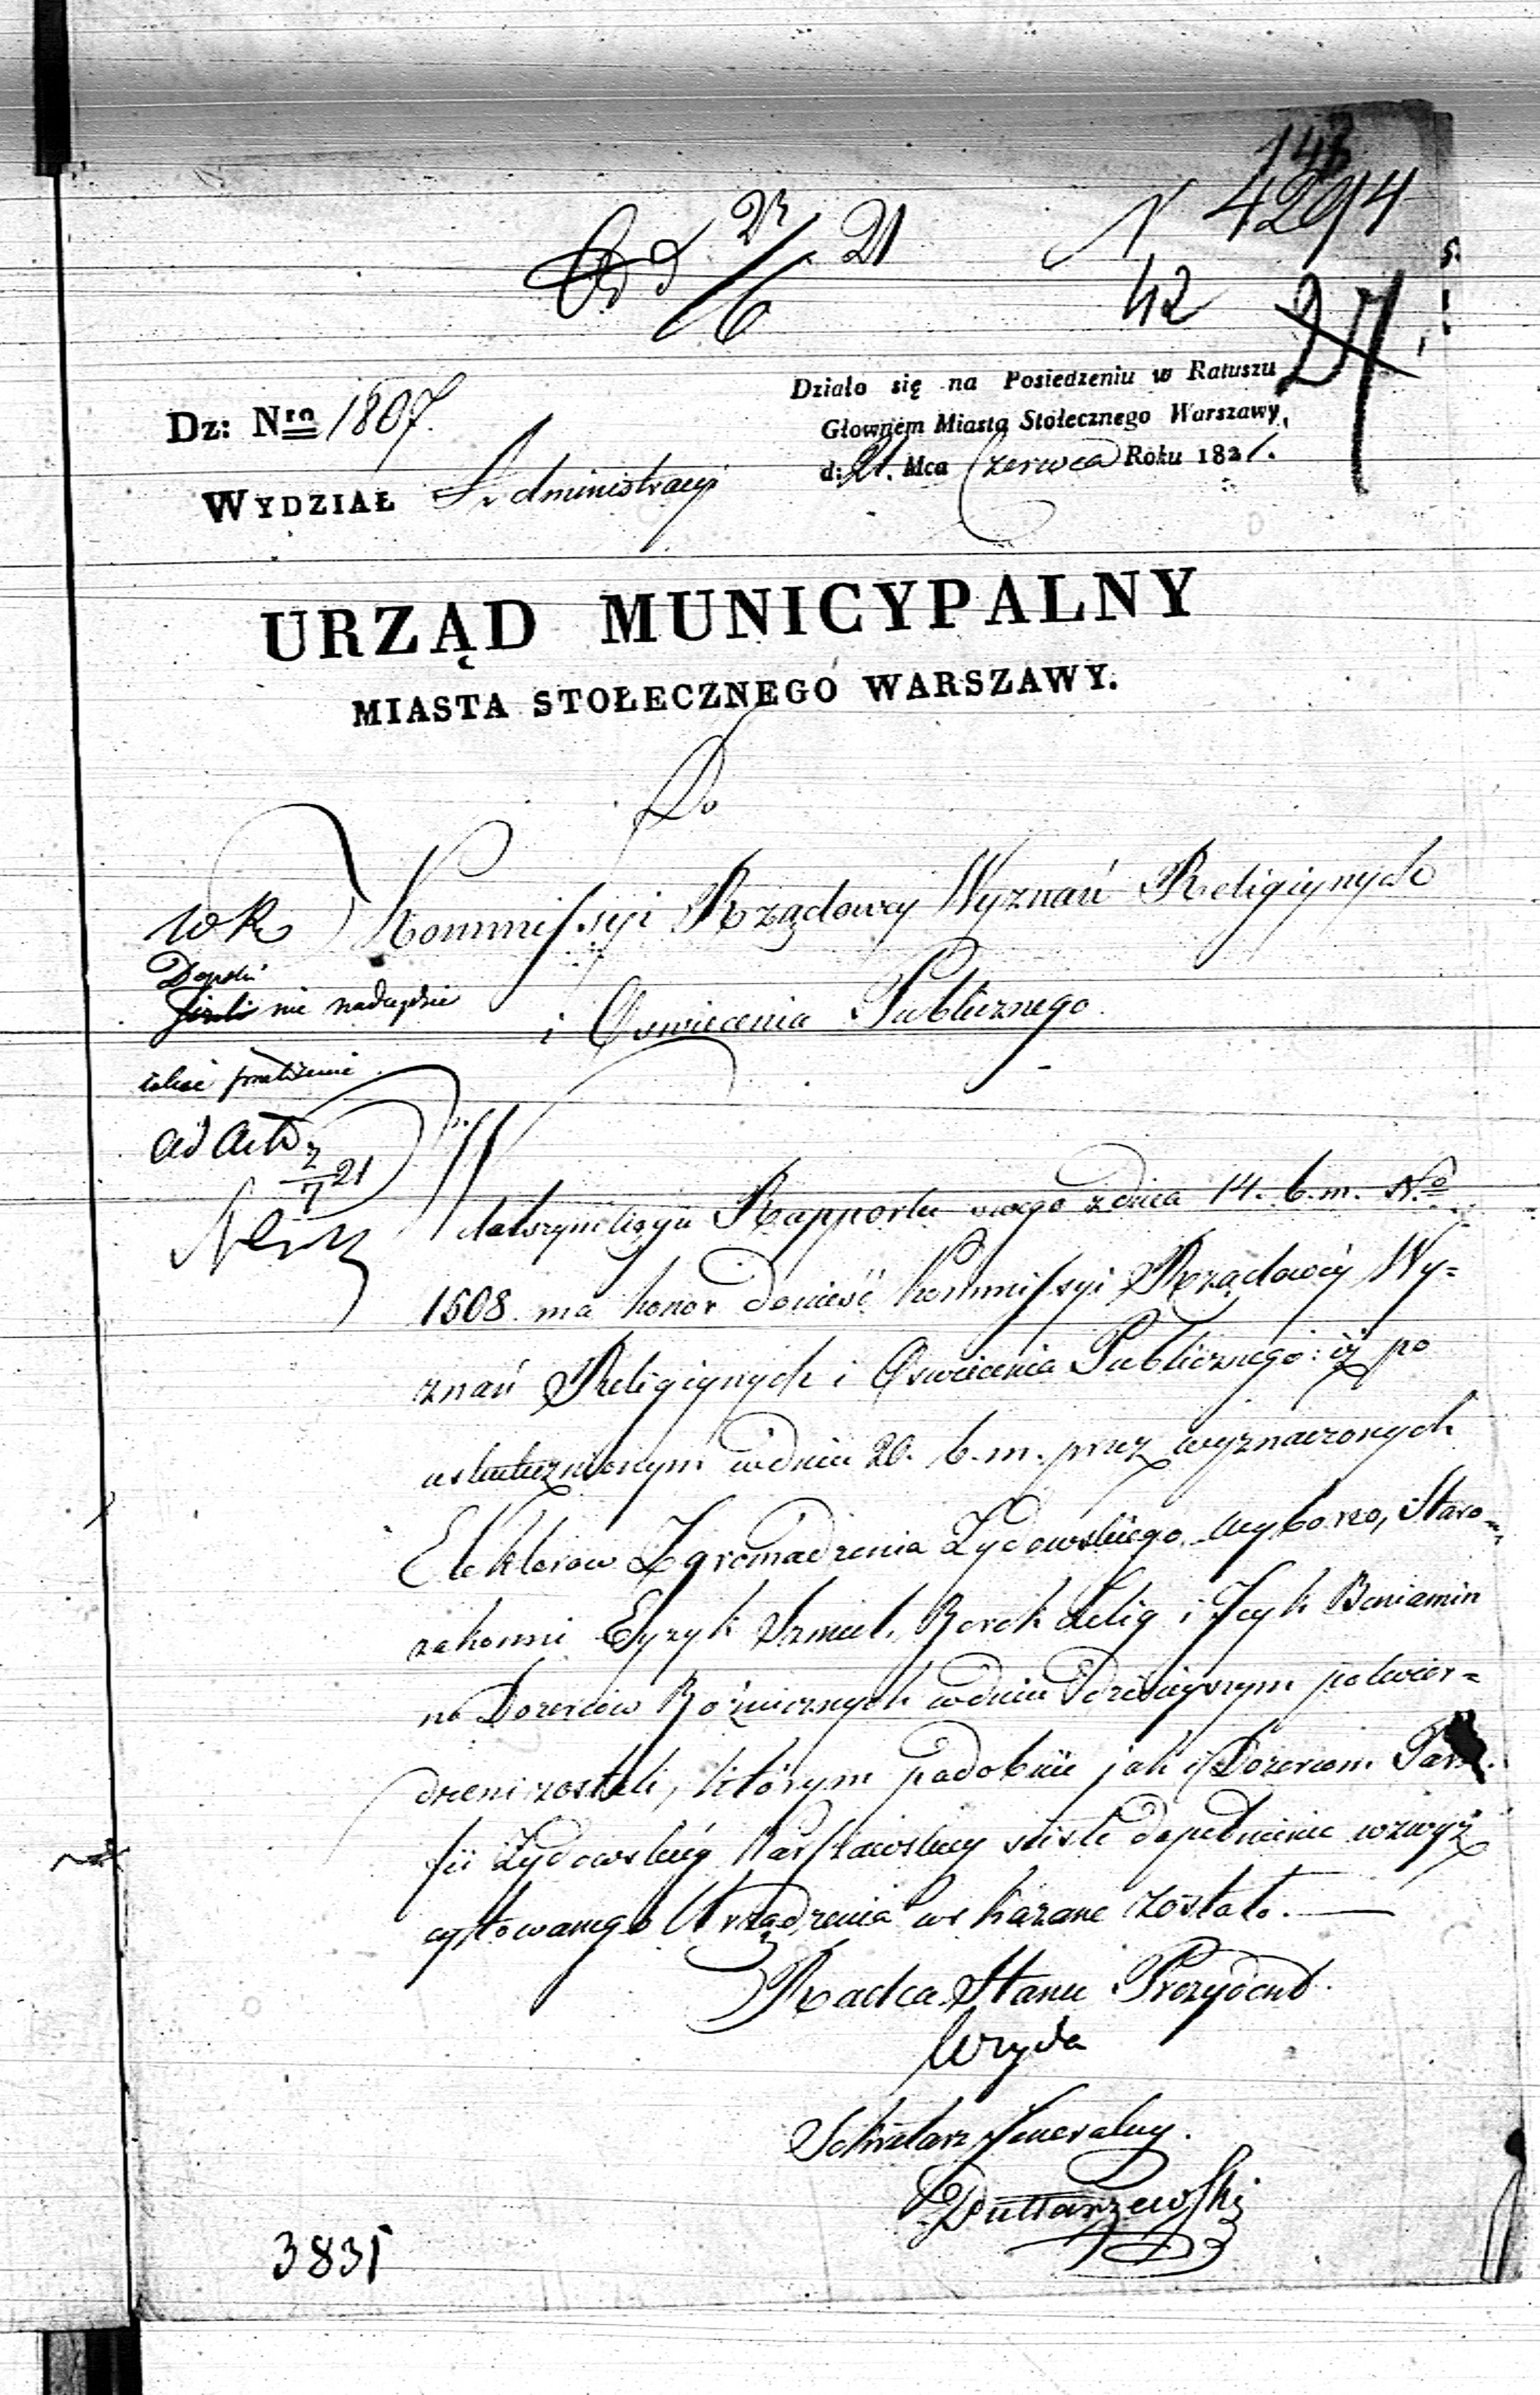 143
N 4294
Od 23/6 21
42
27
Działo się na Posiedzeniu w Ratuszu
Głownem Miasta Stołecznego Warszawy,
d: 21. Mca Czerwca Roku 1821.
Dz: Nro 1807.
WYDZIAŁ Administracyi
URZĄD MUNICYPALNY
MIASTA STOŁECZNEGO WARSZAWY.
Do
Kommissyi Rządowey Wyznań Religiynych
i Oswiecenia Publicznego.
WR
nie nadeydzie
ad acta
2/7 21
W dalszym ciągu Rapportu swego z dnia 14. b. m. No
1508 ma honor donieść Kommissyi Rządowéy Wy=
znań Religiynych i Oswiecenia Publicznego: iż po
uskutecznionym w dniu 20. b. m. przez wyznaczonych
Elektorow Zgromadzenia Żydowskiego wyborze, Staro=
zakonni Eyzyk Szmul, Berek Zelig i Icyk Beniamin
na Dozorców Bóżnicznych w dniu dzisieyszym potwier=
dzeni zostali, którym podobnie jak i Dozorcom Para
fii Żydowskiéy Warszawskiey ścisłe dopełnienie wzwyż
cytowanego Urządzenia wskazane zostało.
Radca Stanu Prezydent.
Woyda
Sekretarz Jeneralny.
3831